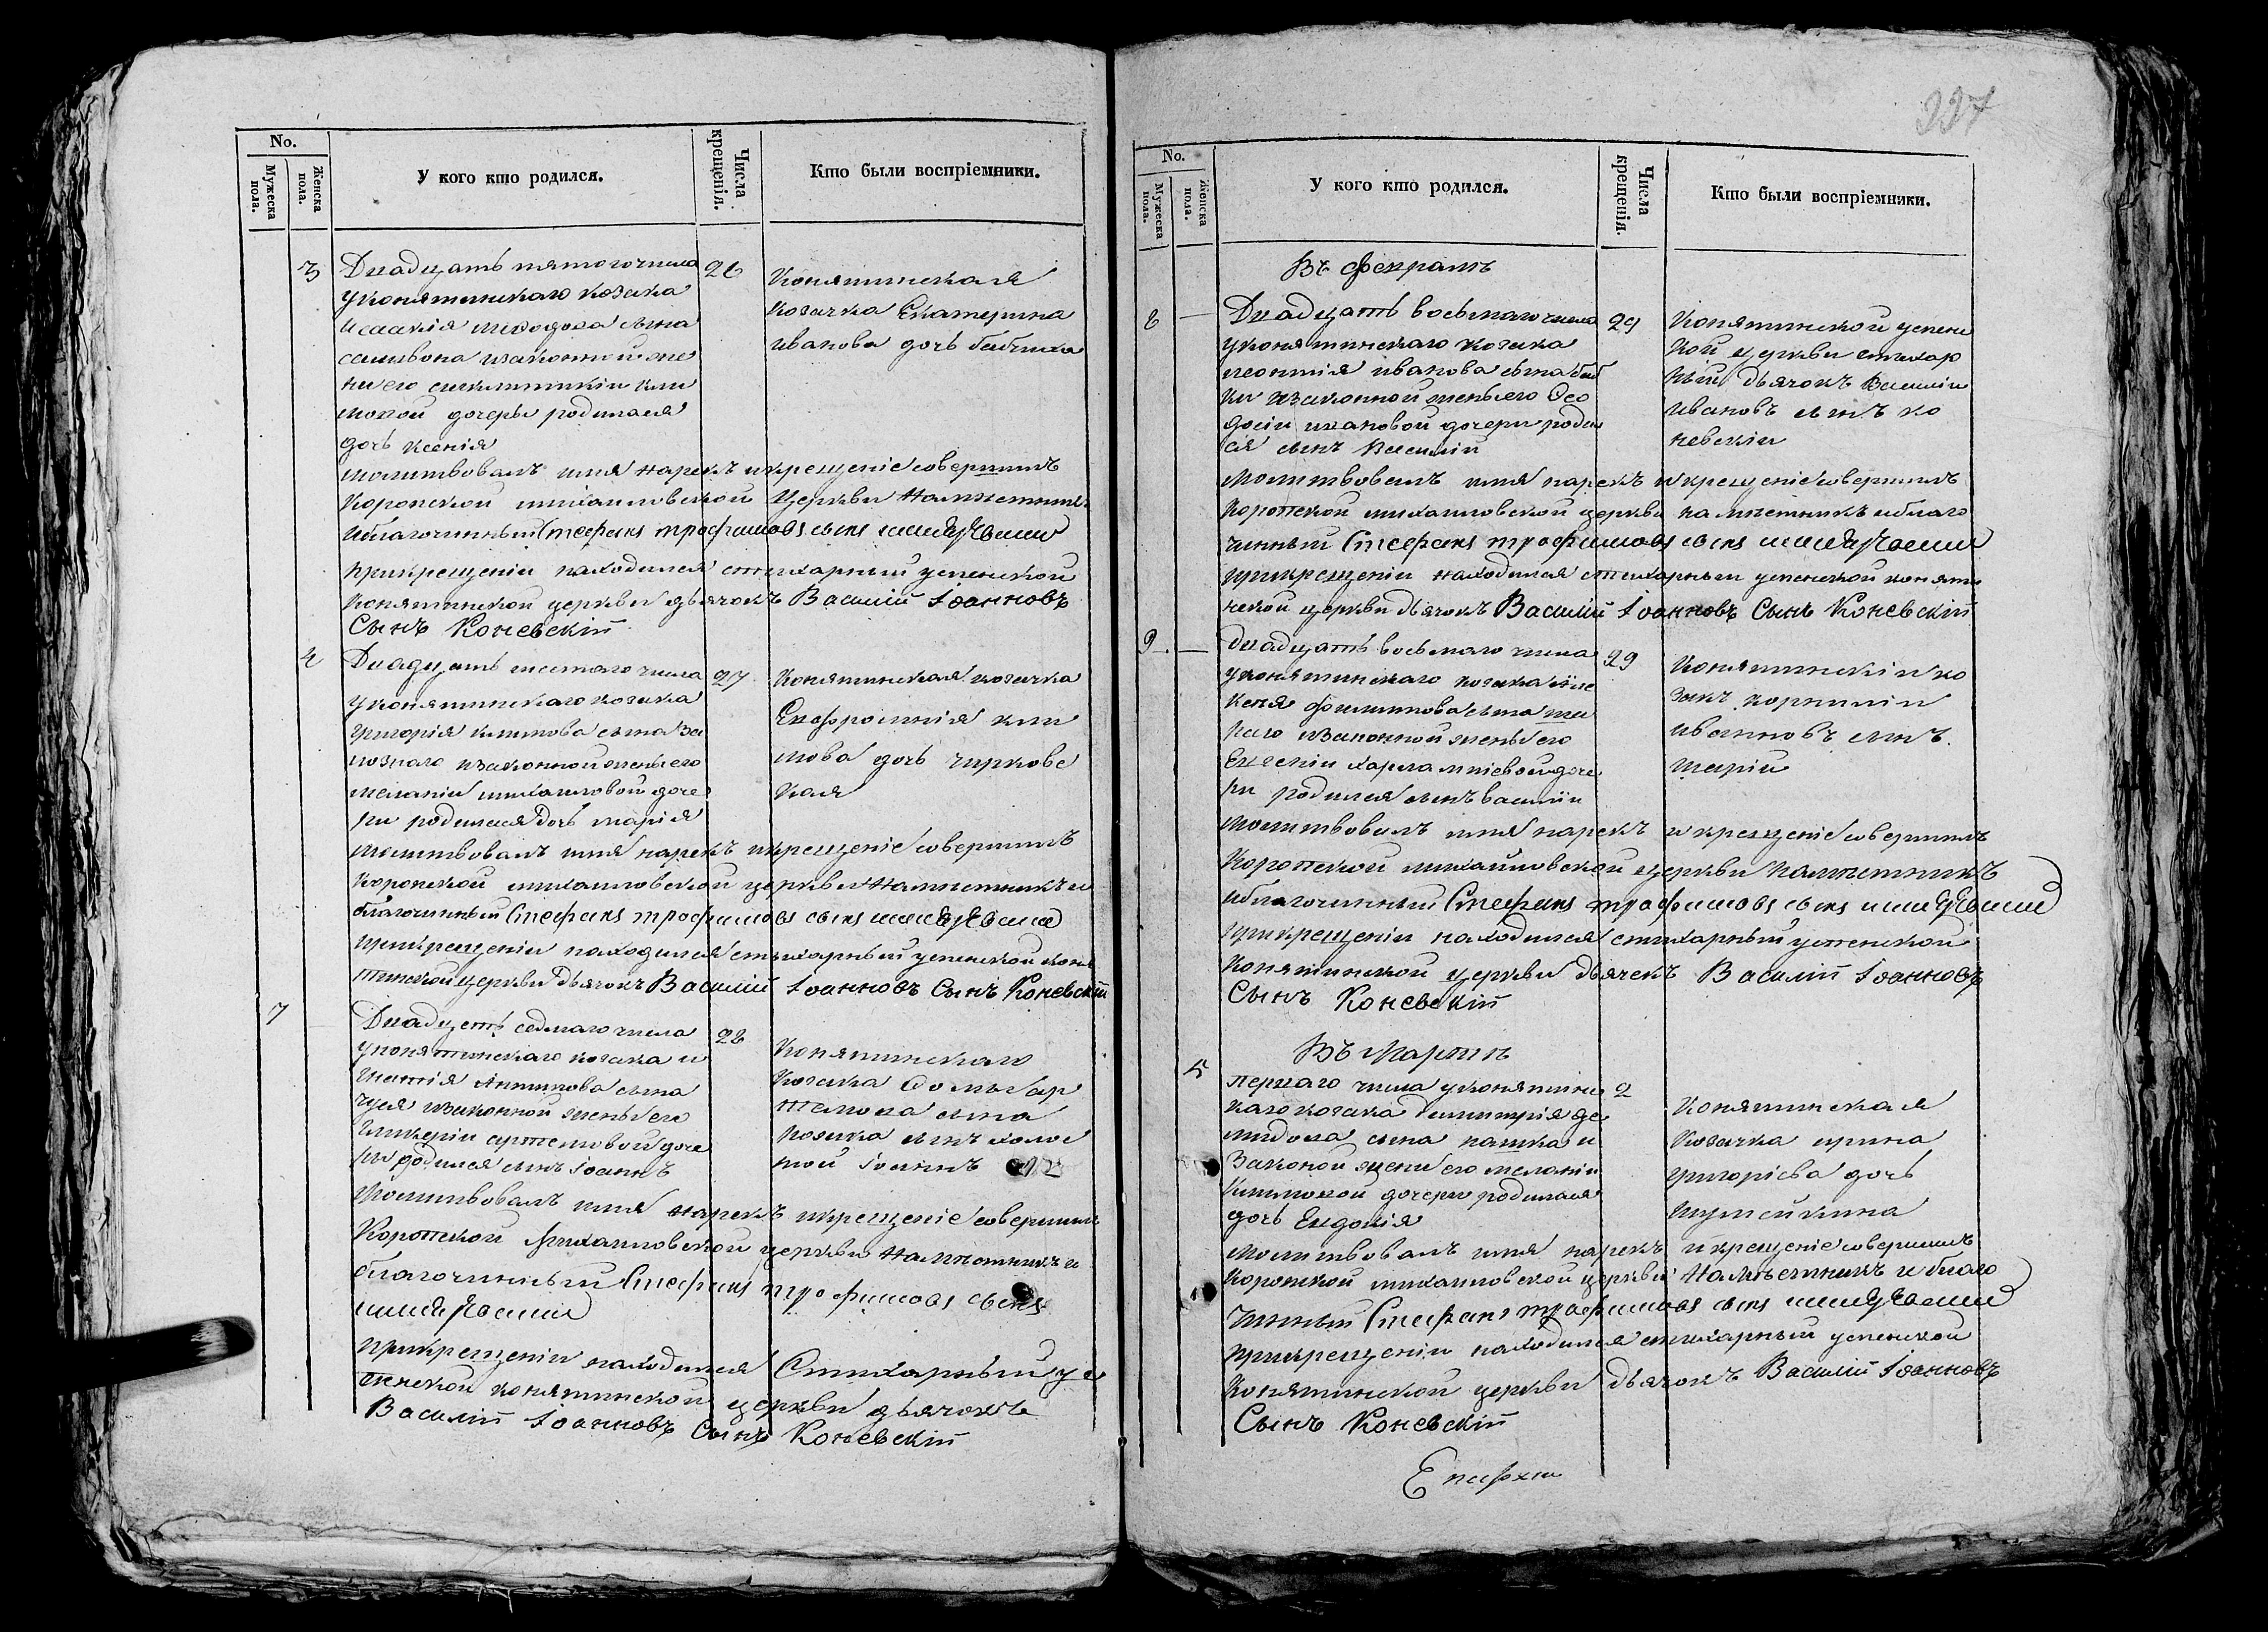 No.
Мужеска пола.
Женска пола.
У кого кто родился.
Числа крещенія.
Кто были воспріемники.
3
Двадцать пятого числа
у конятинскаго козака
сына
законной же
ны его
мовой дочеры родилася
дочь Ксенія
26
Конятинская
козачка Екатерина
Иванова дочь
молитвовалъ имя нарекъ и крещеніе совершилъ
Коропской михаиловской церкви намѣстникъ
и благочинный Стефанъ трофимовъ сынъ
при крещеніи находился стихарный успенской
конятинской церкви дьячокъ Василій Іоанновъ
Сынъ Коневскій
4
Двадцать шестаго числа
у конятинскаго козака
григорія климова сына
законной жены его
меланіи михаиловой доче
ри родилася дочь марія
27
Конятинская козачка
Евфросинія кли
мова дочь чирковс
кая
молитвовалъ имя нарекъ и крещеніе совершилъ
коропской михаиловской церкви намѣстникъ и
благочинный Стефанъ трофимовъ сынъ
при крещеніи находился стихарный успенской коня
тинской церкви дьячокъ Василій Іоанновъ Сынъ Коневскій
7
Двадцать седмаго числа
у конятинскаго козака и
гнатія Антипова сына
законной жены его
гликеріи артемовой доче
ри родился сынъ Іоаннъ
28
Конятинскаго
козака Фомы ар
темова сына
козака сынъ холос
той Іоаннъ
молитвовалъ имя нарекъ и крещеніе совершилъ
Коропской Михаиловской церкви намѣстникъ и
благочинный Стефанъ трофимовъ сынъ
при крещеніи находился Стихарный ус
пенской конятинской церкви дьячокъ
Василій Іоанновъ Сынъ Коневскій
227
No.
Мужеска пола.
Женска пола.
У кого кто родился.
Числа крещенія.
Кто были воспріемники.
Въ февралѣ
8
—
Двадцать восьмаго числа
у конятинскаго козака
леонтія иванова сына баб
ки законной жены его Фео
досіи ивановой дочери родил
ся сынъ Василій
29
Конятинской успенс
кой церкви стихар
ный дьячокъ Василій
Ивановъ сынъ ко
невскій
молитвовалъ имя нарекъ и крещеніе совершилъ
Коропской михаиловской церкви намѣстникъ и благо
чинный Стефанъ трофимовъ сынъ
при крещеніи находился стихарный успенской коняти
нской церкви дьячокъ Василій Іоанновъ Сынъ Коневскій
9.
—
Двадцать восьмаго числа
у конятинскаго козака
филиппова сына
законной жены его
Евгеніи харлампіевой доче
ри родился сынъ василій
29
Конятинскій ко
закъ корнилій
ивановъ сынъ
молитвовалъ имя нарекъ и крещеніе совершилъ
Коропской михайловской церкви намѣстникъ
и благочинный Стефанъ трофимовъ сынъ
при крещеніи находился стихарный успенской
конятинской церкви дьячекъ Василій Іоанновъ
Сынъ Коневскій
Въ Мартѣ
5
перваго числа у конятинс
каго козака димитрія де
мидова сына пашка и
законой жены его меланіи
климовой дочеры родилася
дочь Евдокія
2
Конятинская
козачка ирина
григоріева дочь
молитвовалъ имя нарекъ и крещеніе совершилъ
коропской михаиловской церкви намѣстникъ и благо
чинный Стефанъ трофимовъ сынъ
при крещеніи находился стихарный успенской
конятинской церкви дьячокъ Василій Іоанновъ
Сынъ Коневскій